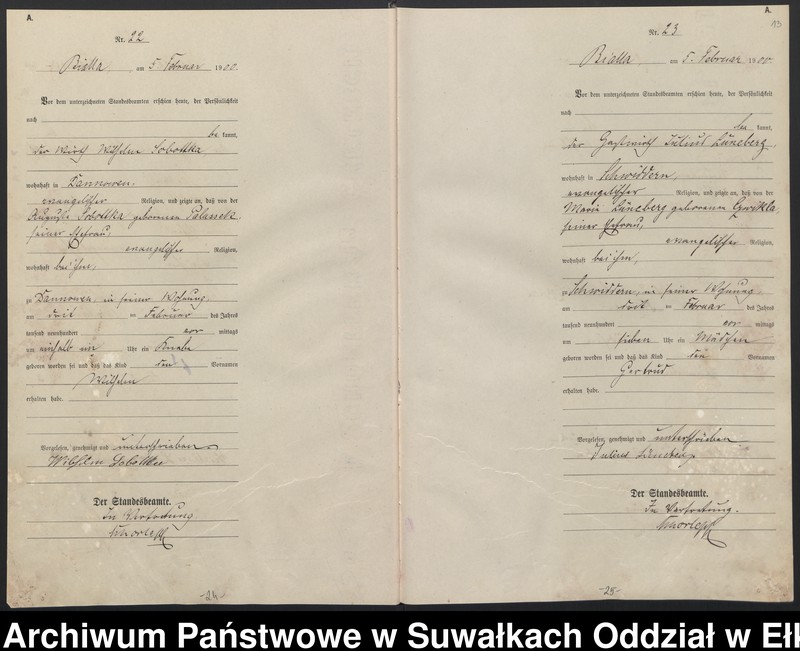 A.
Nr. 22
Bialla am 5 Februar 1900.
Vor dem unterzeichneten Standesbeamten erschien heute, der Persönlichkeit
nach
be kannt,
der Wirth Wilhelm Sobottka
wohnhaft in Dannowen,
evangelischer Religion, und zeigte an, daß von der
Auguste Sobottka geborenen
seiner Ehefrau,
evangelischer Religion,
wohnhaft bei ihm,
zu Dannowen, in seiner Wohnung,
am drei ten Februar des Jahres
tausend neunhundert vor mittags
um einhalb ein Uhr ein Knabe
geboren worden sei und daß das Kind den Vornamen
Wilhelm
erhalten habe.
Vorgelesen, genehmigt und unterschrieben
Wilhelm Sobottka
Der Standesbeamte.
In Vertretung
-24-
A.
13
Nr. 23
Bialla am 5. Februar 1900.
Vor dem unterzeichneten Standesbeamten erschien heute, der Persönlichkeit
nach
be kannt,
der Gastwirth Julius Lüneberg
wohnhaft in Schwiddern,
evangelischer Religion, und zeigte an, daß von der
Maria Lüneberg geborenen Gwikla,
seiner Ehefrau,
evangelischer Religion,
wohnhaft bei ihm,
zu Schwiddern, in seiner Wohnung,
am drit ten Februar des Jahres
tausend neunhundert vor mittags
um sieben Uhr ein Mädchen
geboren worden sei und daß das Kind den Vornamen
Gertrud
erhalten habe.
Vorgelesen, genehmigt und unterschrieben
Julius Lüneberg
Der Standesbeamte.
In Vertretung.
-25-
Archiwum Państwowe w Suwałkach Oddział w Ełk